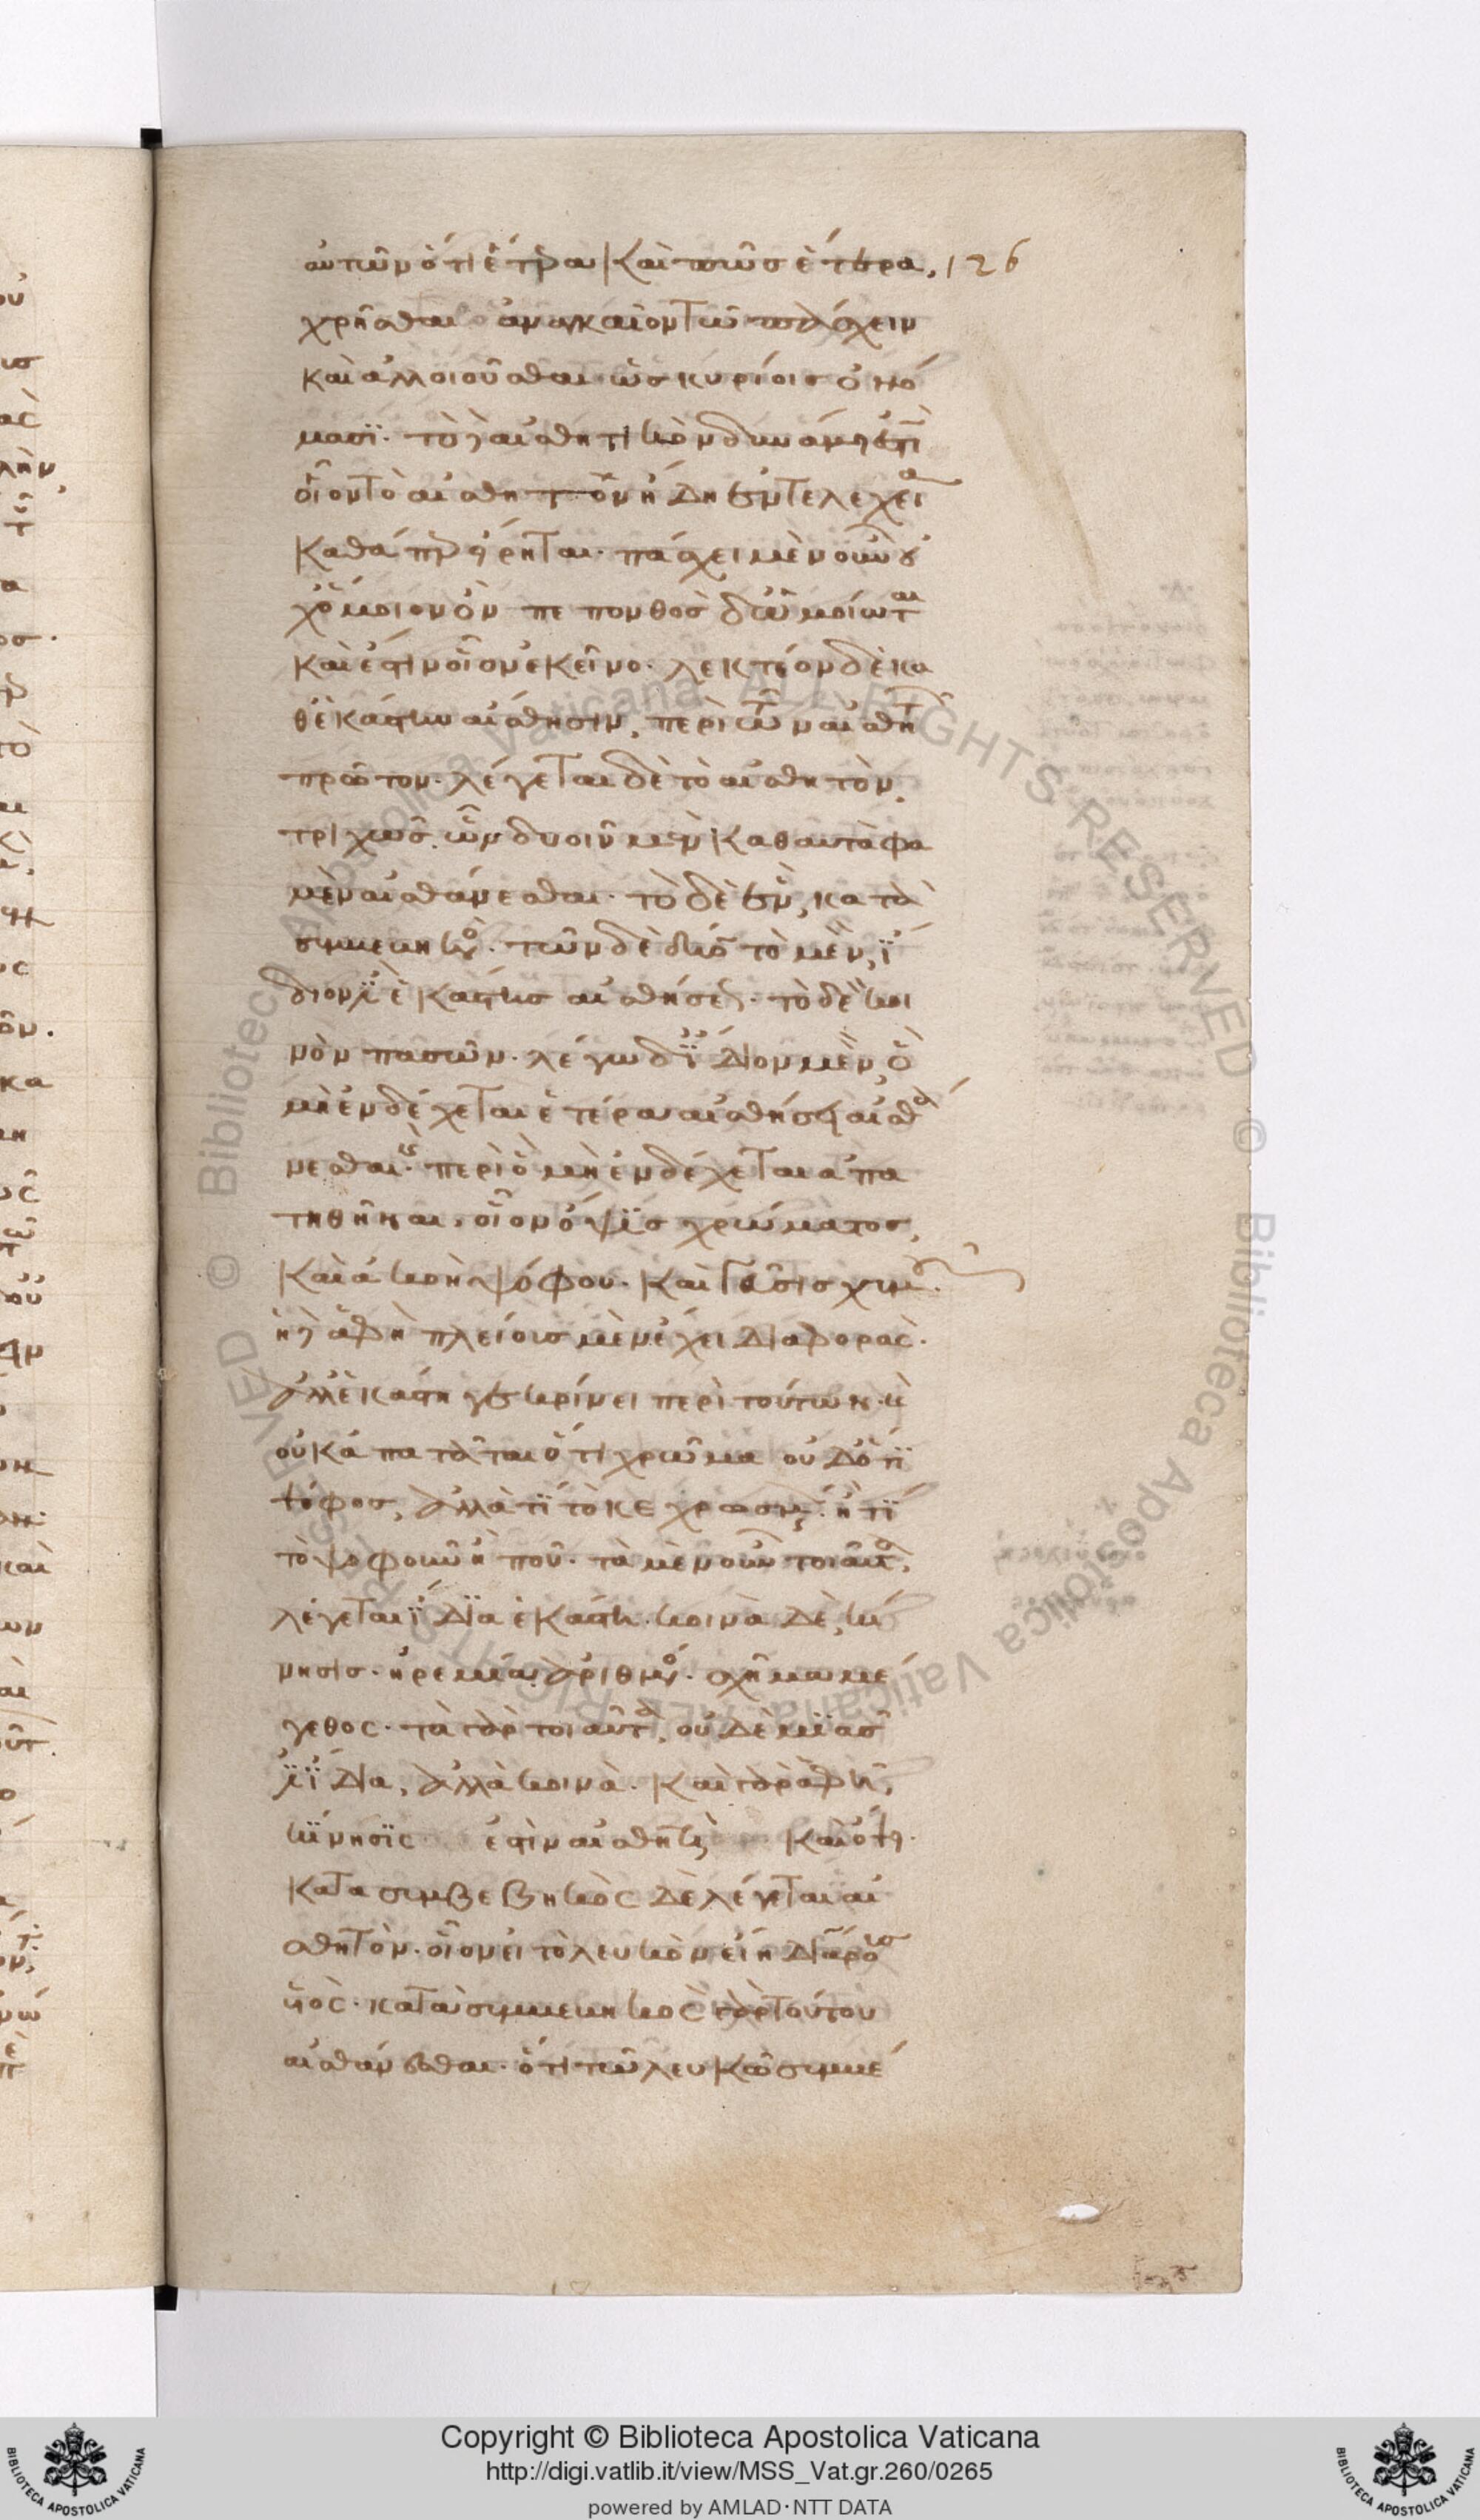 αὐτῶν ὅτι ἕτερα καὶ πῶς ἕτερα, 126
χρῆσθαι ἀναγκαῖον τῶ πάσχειν
καὶ ἀλλοιοῦσθαι ὡς κυρίοις ὀνό
μασϊ. τὸ δ' αἰσθητικὸν δυνάμει ἐστὶ
οἷον τὸ αἰσθητὸν ἤδη ἐντελεχεία
καθάπερ εἴρηται. πάσχει μὲν οὖν οὐ
χ' ὅμοιον ὄν πεπονθὸς δ' ὡμοίωται
καὶ ἐστὶν οἷον ἐκεῖνο. λεκτέον δὲ κα
θ' ἑκάστην αἴσθησιν, περὶ τῶν αἰσθητῶν
πρῶτον. λέγεται δὲ τὸ αἰσθητὸν,
τριχῶς. ὧν δυοῖν μὲν καθ' αὑτὰ φα
μὲν αἰσθάνεσθαι. τὸ δὲ ἓν, κατὰ
συμβεβηκός. τῶν δὲ δυοῖν τὸ μὲν, ἴ
διον ἐϊ ἑκάστης αἰσθήσεως. τὸ δὲ κοι
νὸν πασῶν. λέγω δ' ἴδιον μὲν, ὃ
μὴ ἐνδέχεται ἑτέρα αἰσθήσει αἰσθά
νεσθαι. καὶ περὶ ὃ μὴ ἐνδέχεται ἀπα
τηθῆναι, οἷον ὄψϊς χρώματος,
καὶ ἀκοὴ ψόφου. καὶ γεῦσις χυμοῦ.
ἡ δ' ἁφὴ πλείους μὲν ἔχει διαφοράς.
ἀλλ' ἑκάστη γε κρίνει περὶ τούτων. καὶ
οὐκ ἀπατᾶται ὅτι χρῶμα οὐδ' ὅτϊ
ψόφος, ἀλλὰ τϊ τὸ κεχρωσμένον. ἢ τϊ
τὸ ψοφοῦν ἢ ποῦ. τὰ μὲν οὖν τοιαῦτα,
λέγεται ἴδϊα ἑκάστη. κοινὰ δὲ, κί
νησις. ἠρεμία. ἀριθμός. σχῆμα. μέ
γεθος. τὰ γὰρ τοιαῦτα, οὐδεμϊᾶς
ἐϊ ἴδια, ἀλλὰ κοινὰ. καὶ γὰρ ἁφῆ,
κϊνησϊς ἐστὶν αἰσθητὴ καὶ ὄψει.
κατὰ συμβεβηκὸς δὲ λέγεται αἰ
σθητὸν. οἷον εἰ τὸ λευκὸν εἴη Διάρους
υἱός. κατὰ συμβεβηκὸς γὰρ τούτου
αἰσθάνεσθαι. ὅτι τῶ λευκῶ συμβέ